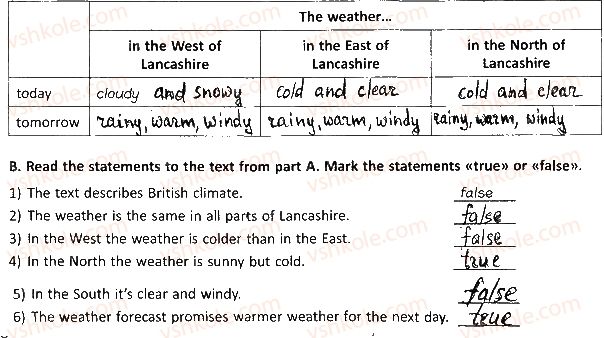 The weather...
in the West of Lancashire in the East of Lancashire in the North of Lancashire
today cloudy and snowy cold and clear cold and clear
tomorrow rainy, warm, windy rainy, warm, windy rainy, warm, windy
B. Read the statements to the text from part A. Mark the statements «true» or «false».
1) The text describes British climate. false
2) The weather is the same in all parts of Lancashire. false
3) In the West the weather is colder than in the East. false
4) In the North the weather is sunny but cold. true
5) In the South it's clear and windy. false
6) The weather forecast promises warmer weather for the next day. true
vshkole.com